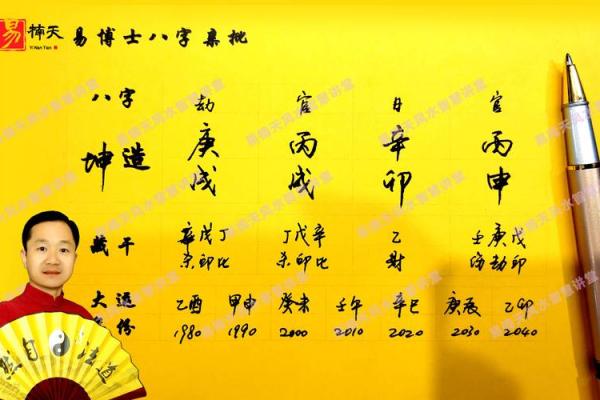 易 楠天 易博士八字亲批
Yi Nan Tian
八字 劫 官 日 官
坤造 庚戌 丙戌 辛卯 丙申
藏干 辛戊丁 丁戊辛 乙 壬庚戊
杀印比 杀印比 财 伤劫印
大运 乙酉 甲申 癸未 壬午 辛巳 庚辰 乙卯
份 1980 1990 2000 2010 2020 2030 2040
然自 法道
易楠天风水智慧讲堂